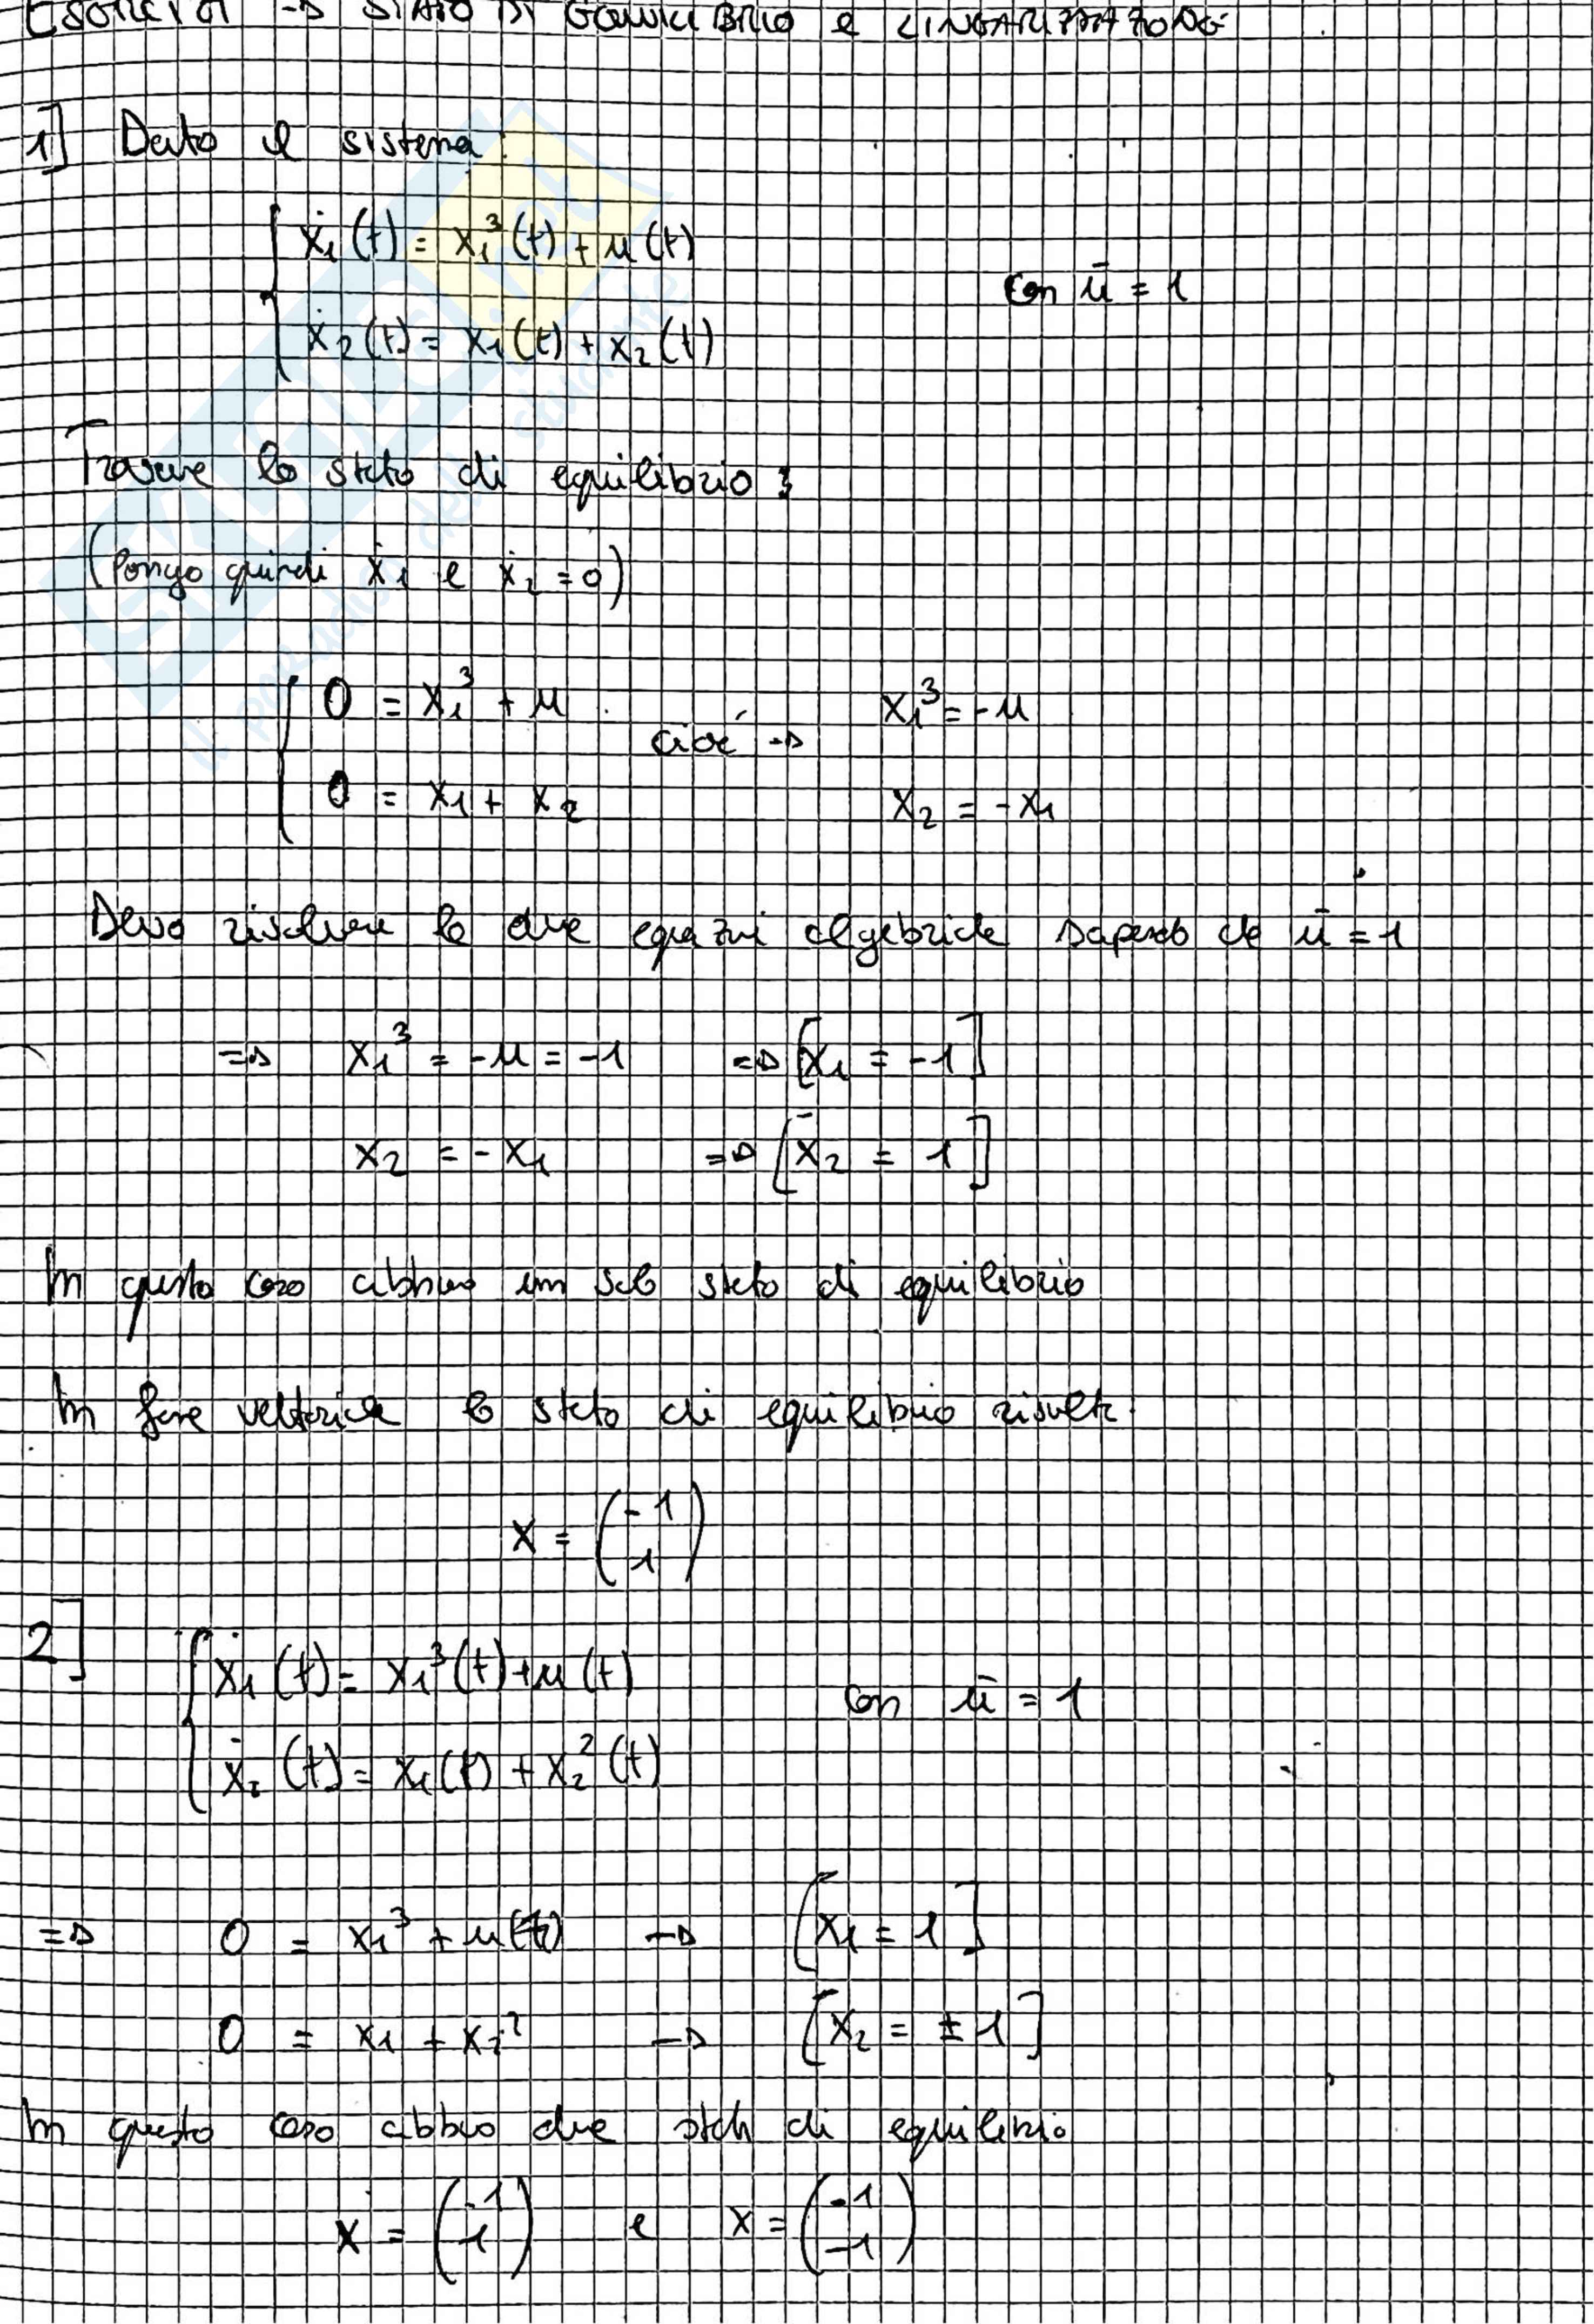 ESERCIZI -> STATO DI EQUILIBRIO e LINEARIZZAZIONE
1] Dato il sistema:
ẋ₁(t) = x₁³(t) + u(t)
con ū = 1
ẋ₂(t) = x₁(t) + x₂(t)
Trovare lo stato di equilibrio:
(Pongo quindi ẋ₁ e ẋ₂ = 0)
0 = x₁³ + u cioè -> x₁³ = -u
0 = x₁ + x₂ x₂ = -x₁
Devo risolvere le due equazioni algebriche sapendo che ū = 1
=> x₁³ = -u = -1 => [x̄₁ = -1]
x₂ = -x₁ => [x̄₂ = 1]
In questo caso abbiamo un solo stato di equilibrio
In forma vettoriale lo stato di equilibrio risulta:
x = (-1
1)
2] ẋ₁(t) = x₁³(t) + u(t)
con ū = 1
ẋ₂(t) = x₁(t) + x₂²(t)
=> 0 = x₁³ + u(t) -> [x₁ = 1]
0 = x₁ + x₂² -> [x₂ = ±1]
In questo caso abbiamo due stati di equilibrio
x = (-1 e x = (-1
1) -1)
SKUOLA.net
il paradiso dello studente